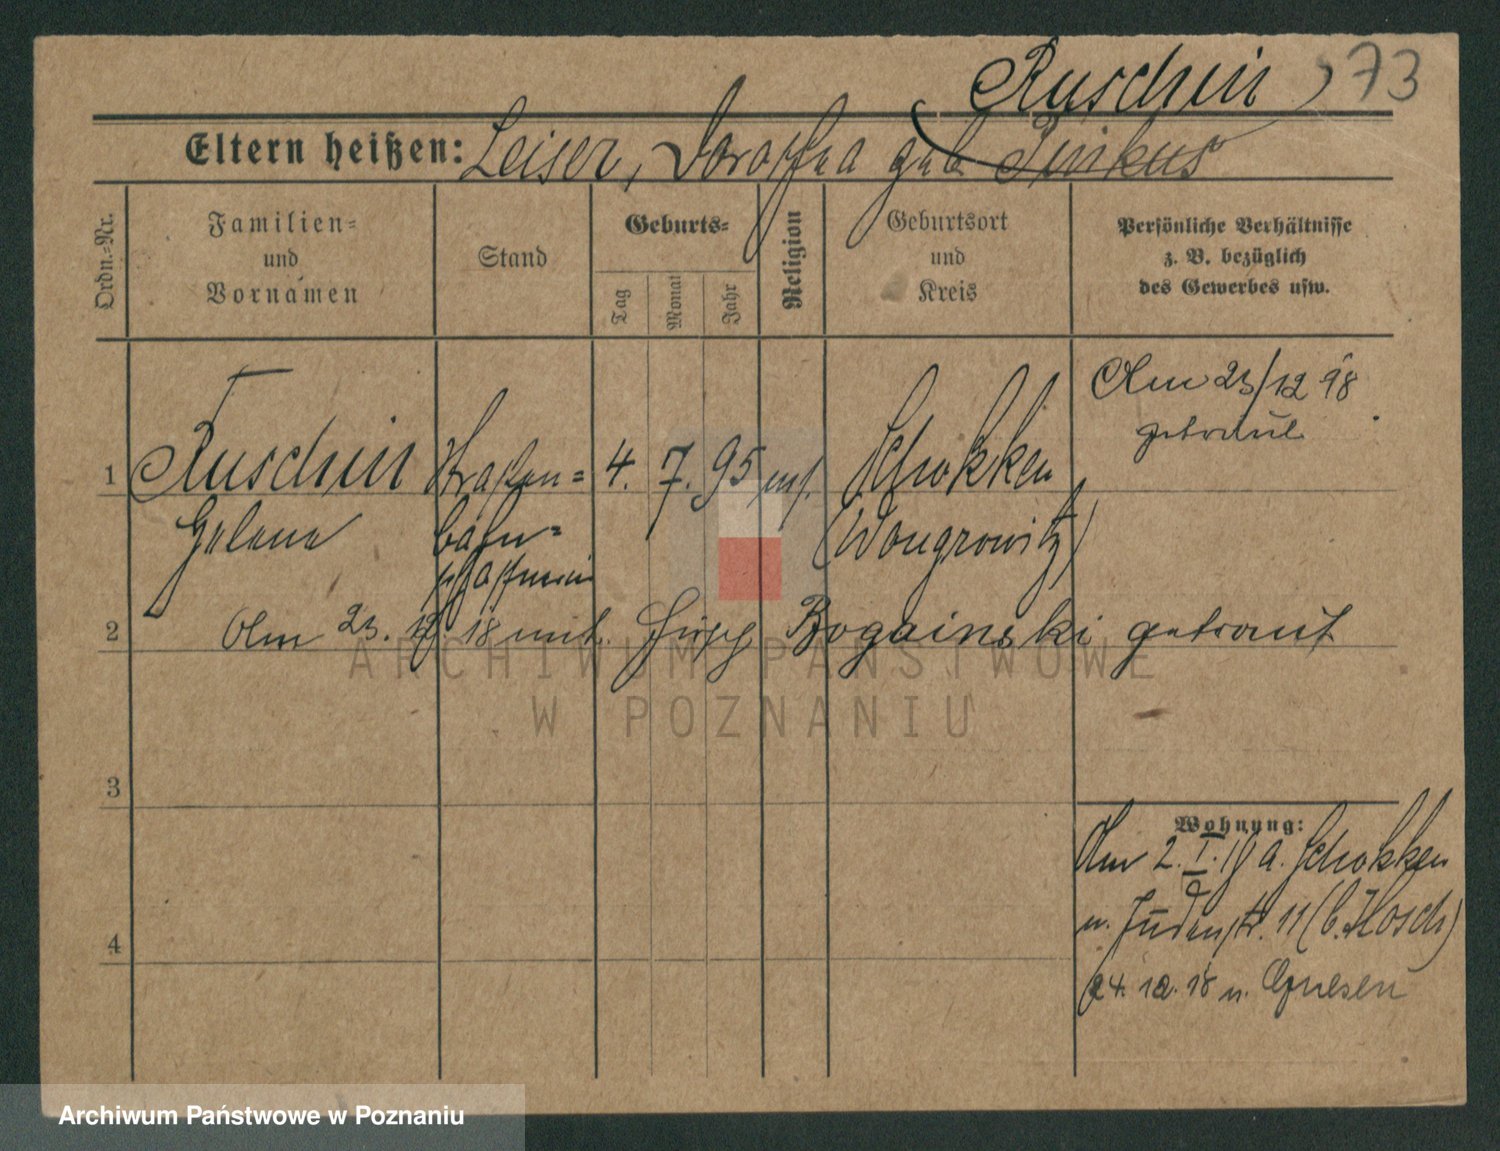 Ruschin 73
Eltern heißen: Leiser, Dorothea geb. Pinkus
Ordn.=Nr.
Familien=
und
Vornamen
Stand
Geburts=
Tag
Monat
Jahr
Religion
Geburtsort
und
Kreis
Persönliche Verhältnisse
z. B. bezüglich
des Gewerbes usw.
Am 23/12 98
getraut
1 Ruschin Straßen= 4. 7. 95 mos. Schokken
Helene bahn= (Wongrowitz)
schaffnerin
2 Am 23. 12. 18 mit Bogainski getraut
3
4
Wohnung:
Am 2. I. 19 a. Schokken
n. Judenstr. 11 (b. Hosch)
24. 12. 18 n. Gnesen
ARCHIWUM PAŃSTWOWE
W POZNANIU
Archiwum Państwowe w Poznaniu